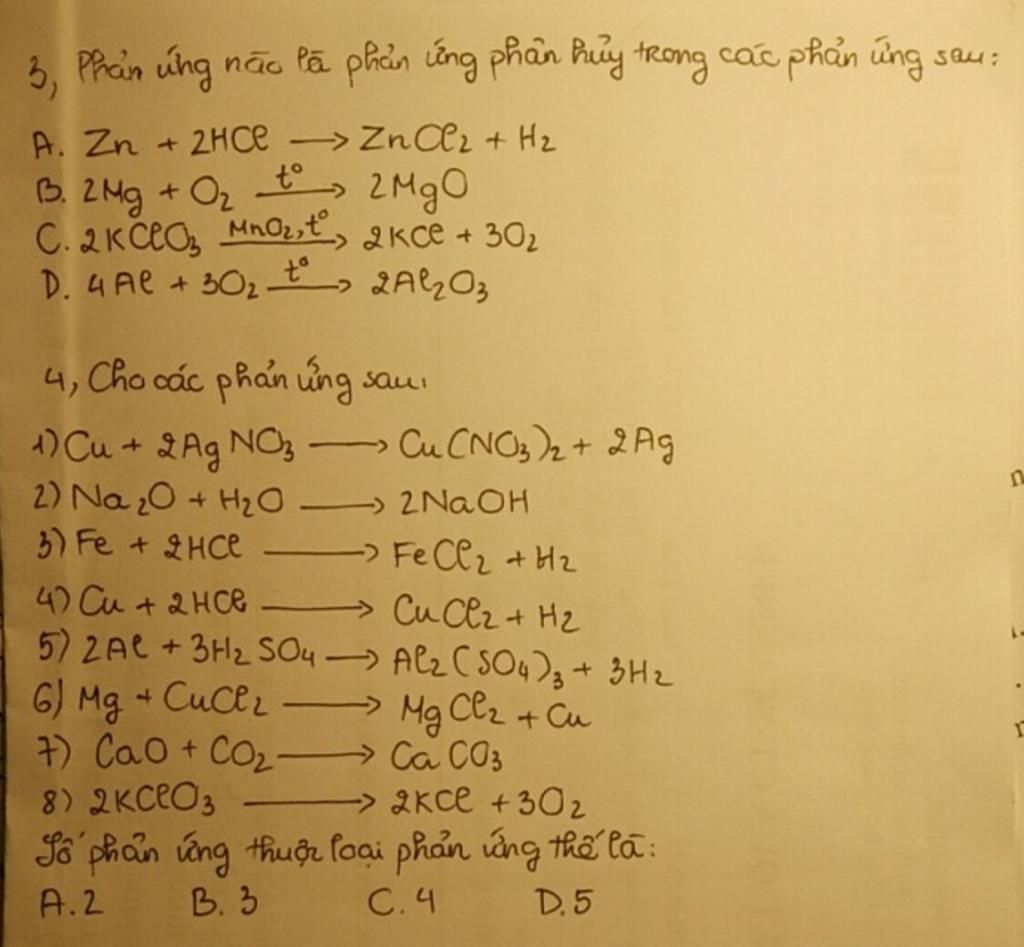 3, Phản ứng nào là phản ứng phân hủy trong các phản ứng sau:
A. Zn + 2HCl → ZnCl₂ + H₂
B. 2Mg + O₂ t° → 2MgO
C. 2KClO₃ MnO₂,t° → 2KCl + 3O₂
D. 4Al + 3O₂ t° → 2Al₂O₃
4, Cho các phản ứng sau:
1) Cu + 2AgNO₃ → Cu(NO₃)₂ + 2Ag
2) Na₂O + H₂O → 2NaOH
3) Fe + 2HCl → FeCl₂ + H₂
4) Cu + 2HCl → CuCl₂ + H₂
5) 2Al + 3H₂SO₄ → Al₂(SO₄)₃ + 3H₂
6) Mg + CuCl₂ → MgCl₂ + Cu
7) CaO + CO₂ → CaCO₃
8) 2KClO₃ → 2KCl + 3O₂
Số phản ứng thuộc loại phản ứng thế là:
A. 2 B. 3 C. 4 D. 5